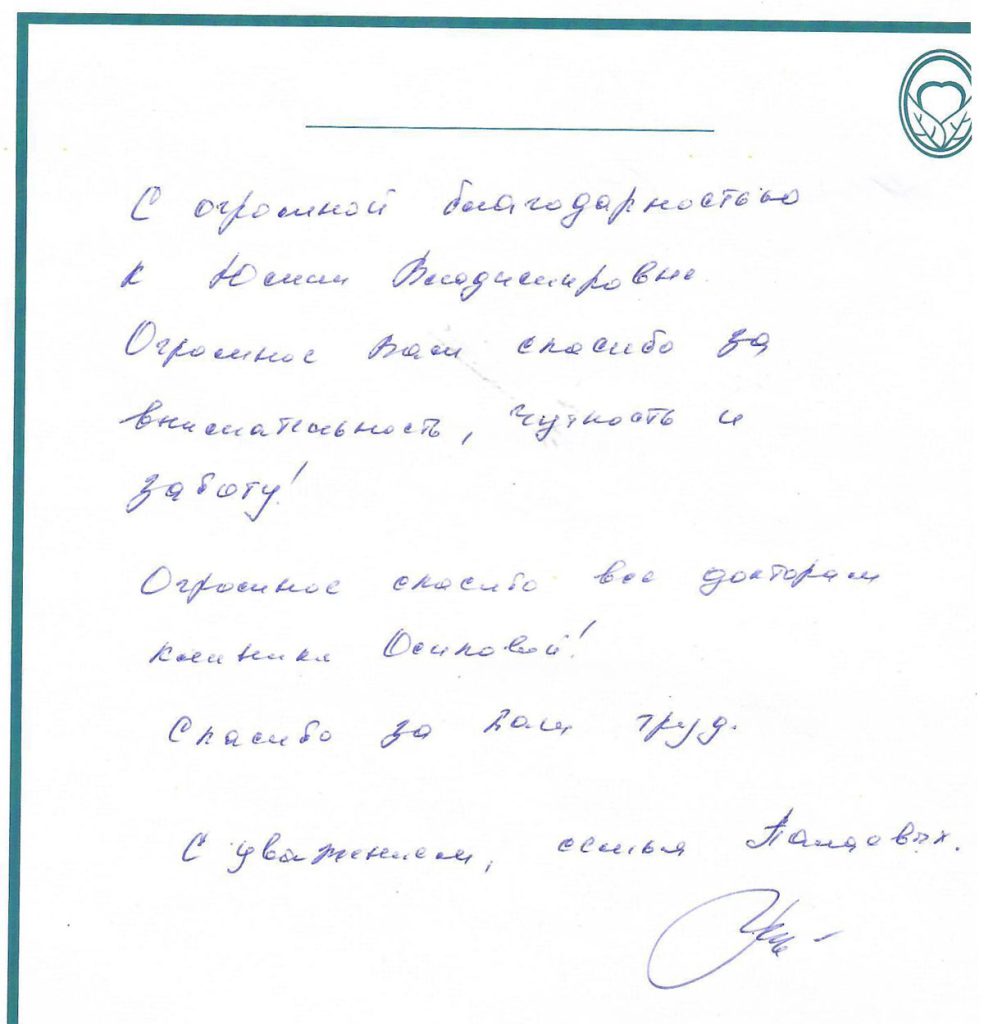 С огромной благодарностью
к Юлии Владимировне.
Огромное Вам спасибо за
внимательность, чуткость и
заботу!
Огромное спасибо все докторам
клиники Осиповой!
Спасибо за Ваш труд.
С уважением, семья